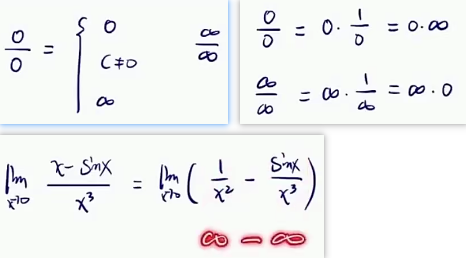 0/0 = { 0
C≠0
∞
∞/∞
0/0 = 0·1/0 = 0·∞
∞/∞ = ∞·1/∞ = ∞·0
lim x→0 (x - sinx)/x³ = lim x→0 (1/x² - sinx/x³)
∞ - ∞